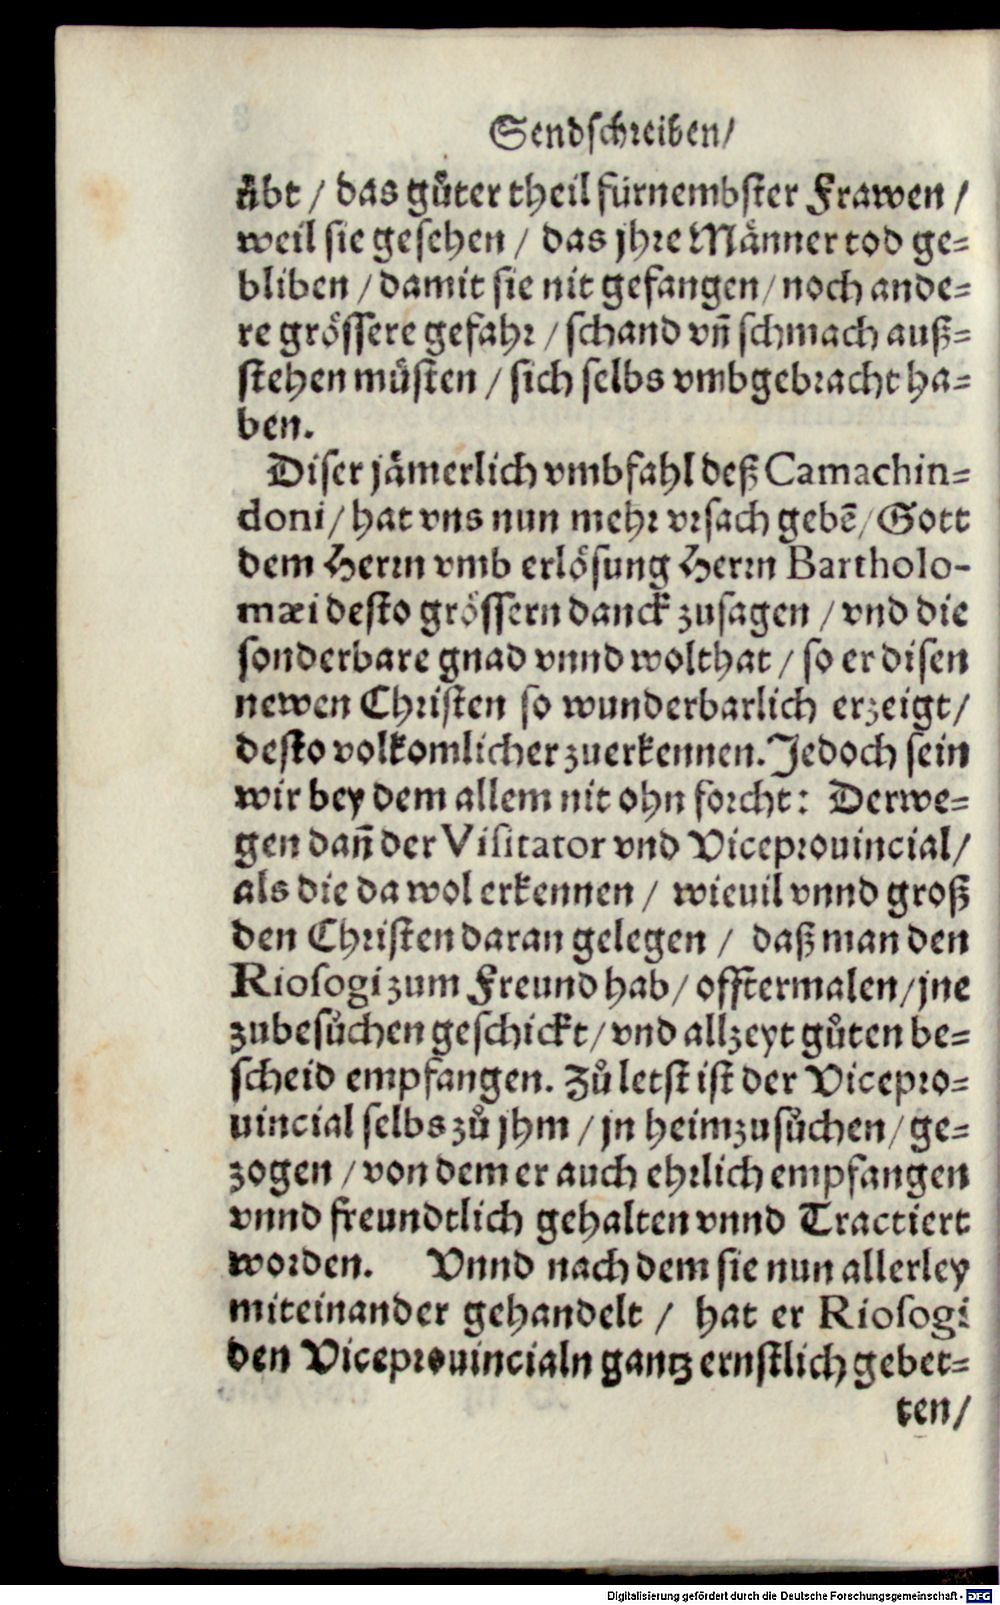 Sendschreiben/
übt / das güter theil fürnembster Frawen /
weil sie gesehen / das jhre Männer tod ge=
bliben / damit sie nit gefangen / noch ande=
re grössere gefahr / schand vñ schmach auß=
stehen müsten / sich selbs vmbgebracht ha=
ben.
Diser jämerlich vmbfahl deß Camachin=
doni / hat vns nun mehr vrsach gebẽ / Gott
dem Herrn vmb erlösung Herrn Bartholo-
mæi desto grössern danck zusagen / vnd die
sonderbare gnad vnnd wolthat / so er disen
newen Christen so wunderbarlich erzeigt /
desto volkomlicher zuerkennen. Jedoch sein
wir bey dem allem nit ohn forcht: Derwe=
gen dañ der Visitator vnd Viceprouincial /
als die da wol erkennen / wieuil vnnd groß
den Christen daran gelegen / daß man den
Riosogi zum Freund hab / offtermalen / jne
zubesůchen geschickt / vnd allzeyt gůten be=
scheid empfangen. Zů letst ist der Vicepro=
uincial selbs zů jhm / jn heimzusůchen / ge=
zogen / von dem er auch ehrlich empfangen
vnnd freundtlich gehalten vnnd Tractiert
worden. Vnnd nach dem sie nun allerley
miteinander gehandelt / hat er Riosogi
den Viceprouincialn gantz ernstlich gebet=
ten /
Digitalisierung gefördert durch die Deutsche Forschungsgemeinschaft - DFG